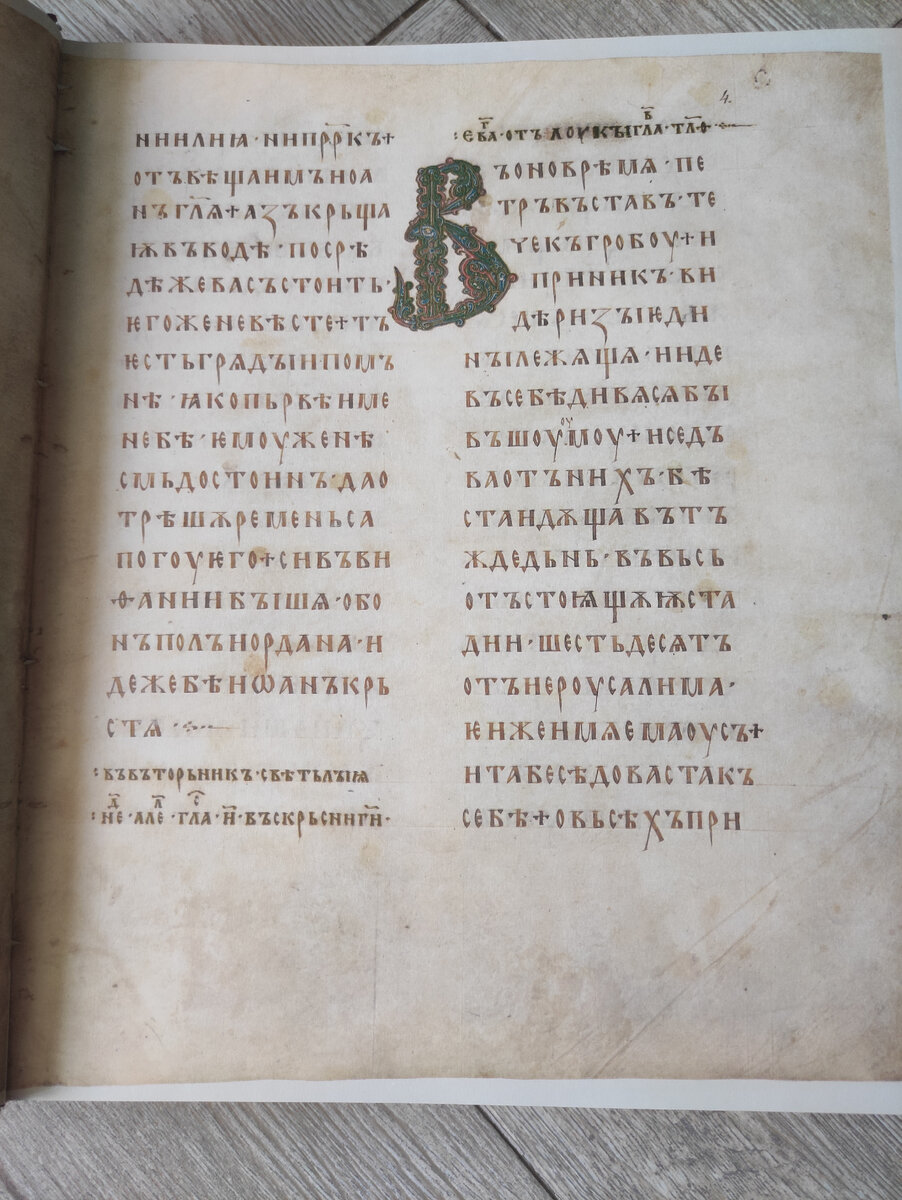 4.
нинлиꙗ · нипрⷬ҇ркъ +
отъвѣщаимъиоа
нъгл҃ѧ + азъкрьща
ѭвъводѣ · посрѣ
дѣжевасъстоить ·
ѥгоженевѣсте + тъ
ѥстьгрѧдыипомъ
нѣ · ꙗкопьрвѣиме
небѣ · ѥмоуженѣ
смьдостоинъ · дао
трѣшѫременьса
погоуѥго + сивъви
ѳаниибышѧ · обо
нъполъиордана · и
дежебѣиѡанъкрь
стѧ ·
: въвъторьникъ · свѣтьлыꙗ
: неⷣ · алеⷧ · глаⷭ · н҃ · въскрьсниг҃и ·
: евⷢ҇а · отълоукыглⷡа · тл҃о ·
Въоноврѣмѧ · пе
тръвъставъ · те
чекъгробоу + и
приникъ · ви
дѣризыѥди
нылежѧщѧ ·ииде
въсебѣдивѧсѧбы
въшоуⷹмоу + иседъ
ваотънихъ · бѣ
стаидѫщавътъ
ждедьнь · въвьсь
отъстоꙗщѫѭста
дии · шестьдесѧтъ
отъиероусалима ·
ѥижеимѧемаоусъ +
итабесѣдовастакъ
себѣ + овьсѣхъпри